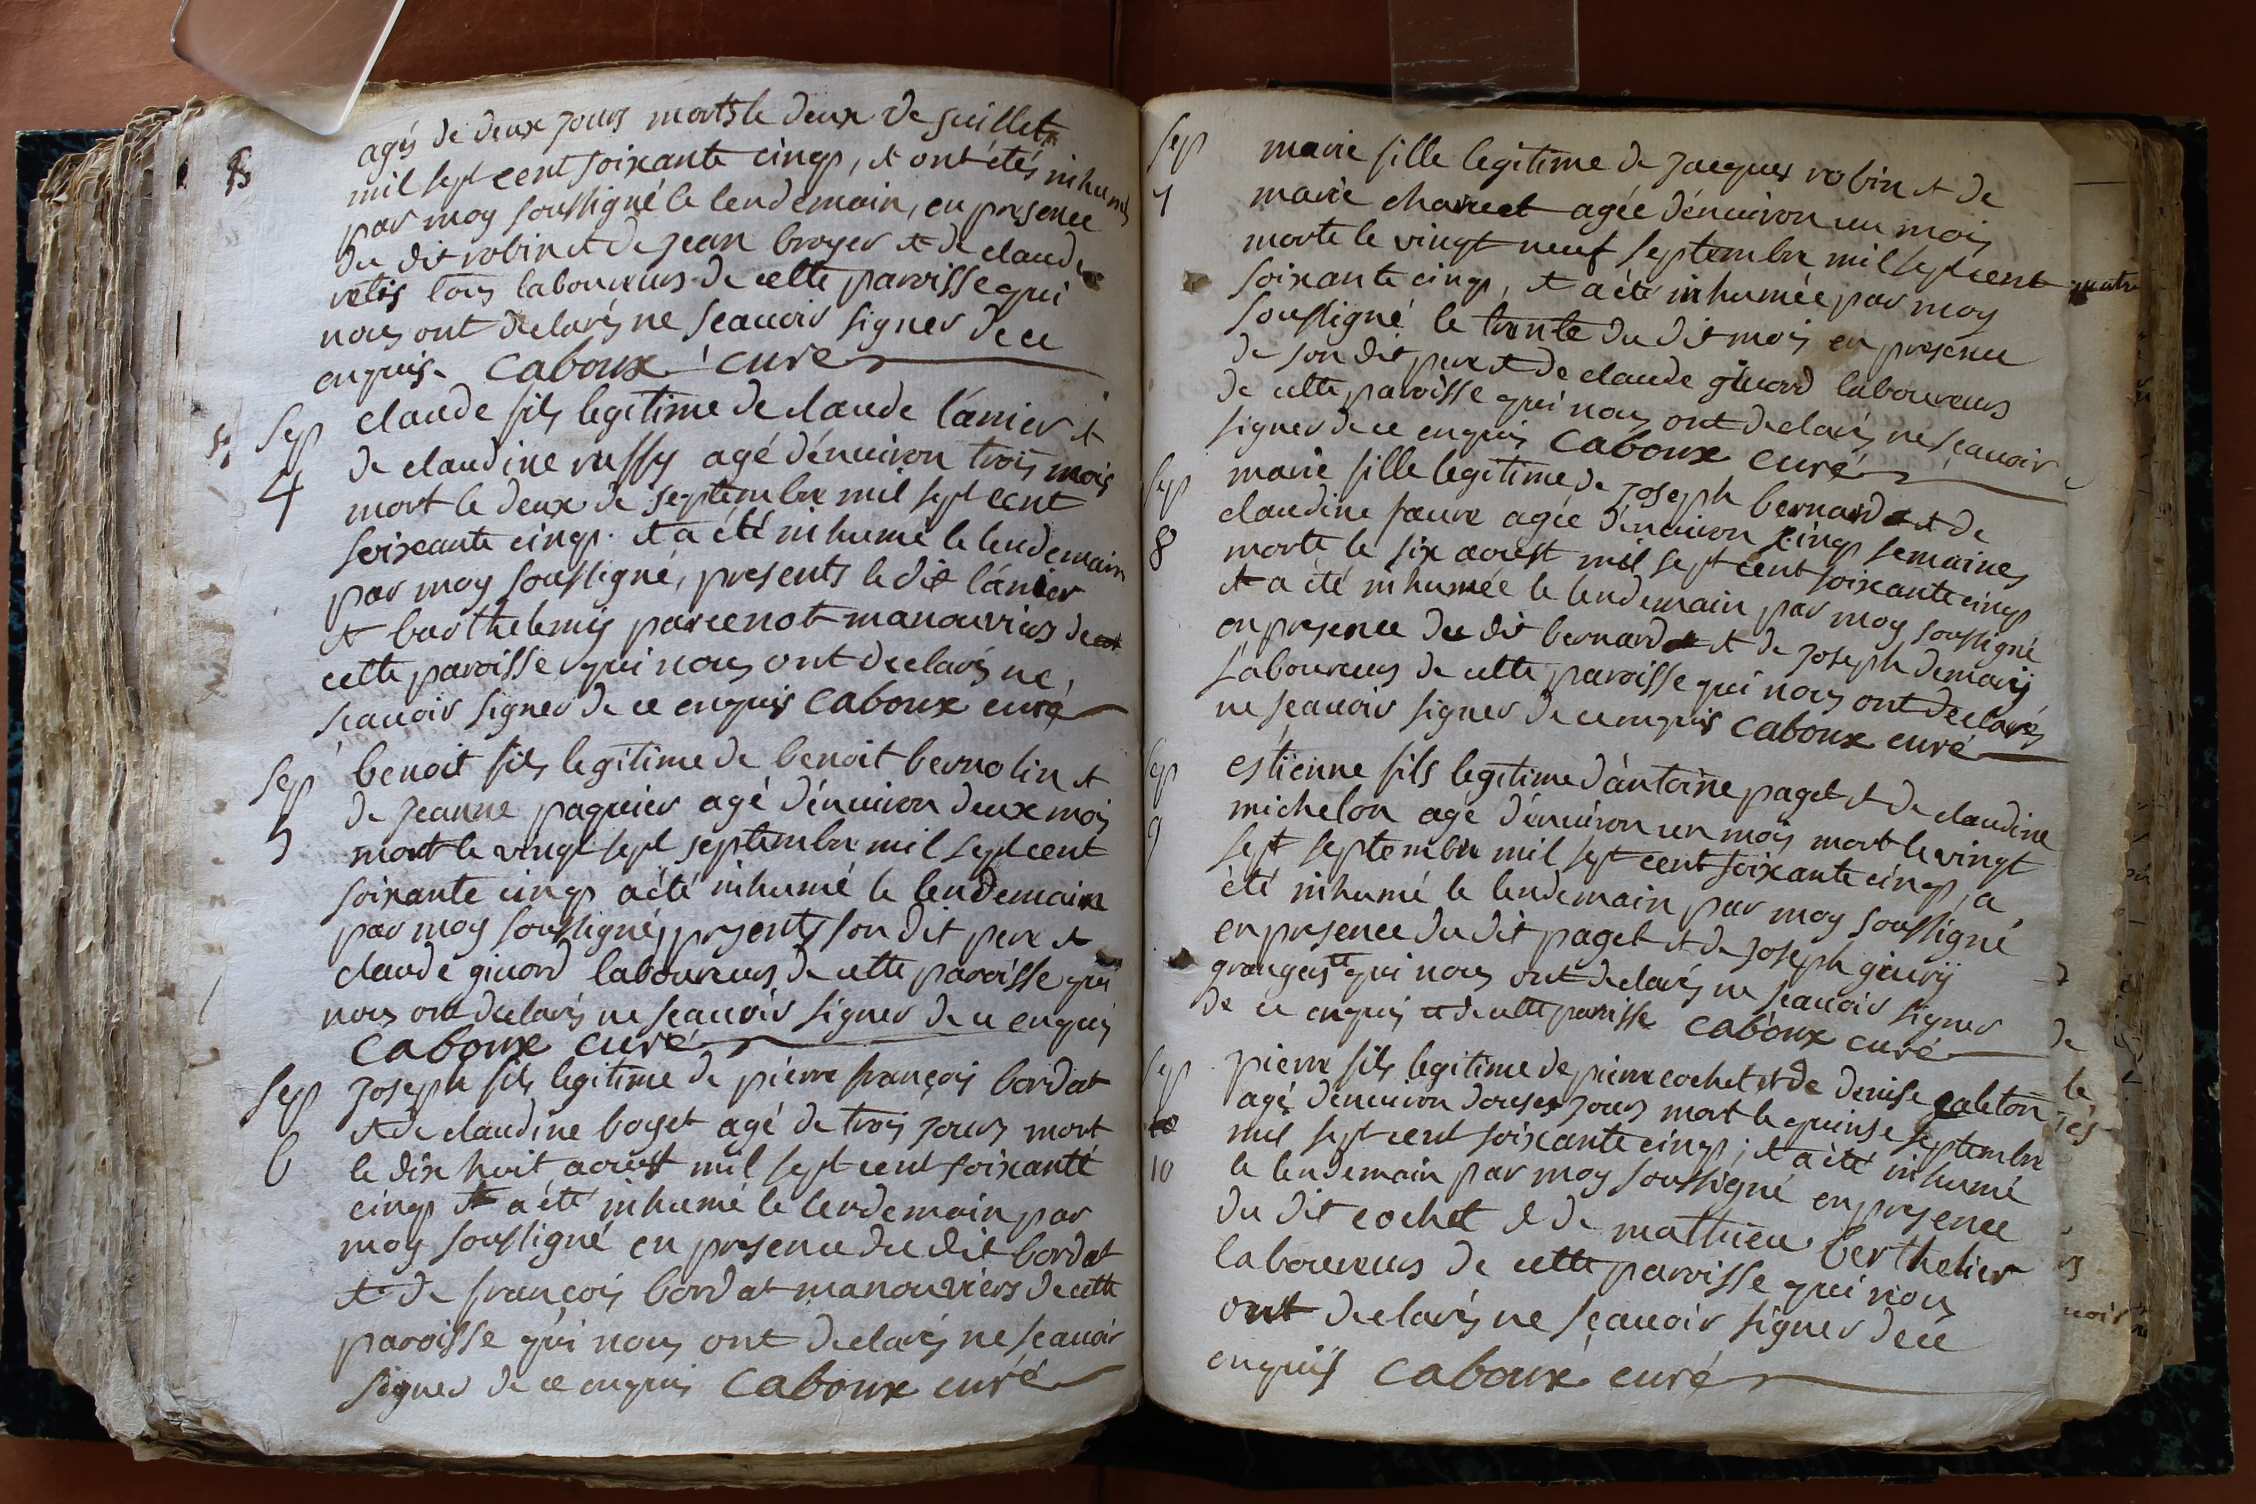 agés de deux jours morts le deux de juillet
mil sept cent soixante cinq, et ont étés inhumés
par moy soussigné le lendemain, en presence
du dit robin et de jean broyer et de claude
tous laboureurs de cette paroisse qui
nous ont declarés ne scauoir signer de ce
enquis. Caboux curé
Sep claude fils legitime de claude lánier et
4 de claudine russy agé d'énuiron trois mois
mort le deux de septembre mil sept cent
soixante cinq. et a été inhumé le lendemain
par moy soussigné, presents le dit lánier
et barthelemy parcenot manouuriers de
cette paroisse qui nous ont declarés ne
scauoir signer de ce enquis Caboux curé
Sep benoit fils legitime de benoit bernolin et
5 de jeanne paquier agé d'énuiron deux mois
mort le vingt sept septembre mil sept cent
soixante cinq a été inhumé le lendemain
par moy soussigné, presents son dit pere et
claude giuord laboureurs de cette paroisse qui
nous ont declarés ne scauoir signer de ce enquis
Caboux curé
Sep joseph fils legitime de pierre françois bordat
et de claudine boyet agé de trois jours mort
6 le dix huit aoust mil sept cent soixante
cinq et a été inhumé le lendemain par
moy soussigné en presence du dit bordat
et de françois bordat manouuriers de cette
paroisse qui nous ont declarés ne scauoir
signer de ce enquis Caboux curé
Sep marie fille legitime de jacques robin et de
7 marie charuet agée d'énuiron un mois
morte le vingt neuf septembre mil sept cent
soixante cinq, et a été inhumée par moy
soussigné le trente du dit mois en presence
de son dit pere et de claude giuord laboureurs
de cette paroisse qui nous ont declarés ne scauoir
signer de ce enquis Caboux curé
Sep marie fille legitime de joseph bernard et de
claudine faure agée d'énuiron cinq semaines
8 morte le six aoust mil sept cent soixante cinq
et a été inhumée le lendemain par moy soussigné
en presence du dit bernard et de joseph demary
laboureurs de cette paroisse qui nous ont declarés
ne scauoir signer de ce enquis Caboux curé
Sep estienne fils legitime d'antoine paget et de claudine
michelon agé d'énuiron un mois mort le vingt
9 sept septembre mil sept cent soixante cinq, a
été inhumé le lendemain par moy soussigné
en presence du dit paget et de joseph giury
grangers qui nous ont declarés ne scauoir signer
de ce enquis et de cette paroisse Caboux curé
Sep pierre fils legitime de pierre cochet et de denise galeton
agé d'enuiron douse jours mort le quinse septembre
mil sept cent soixante cinq; et a été inhumé
10 le lendemain par moy soussigné en presence
du dit cochet et de mathieu berthelier
laboureurs de cette paroisse qui nous
ont declarés ne scauoir signer de ce
enquis Caboux curé